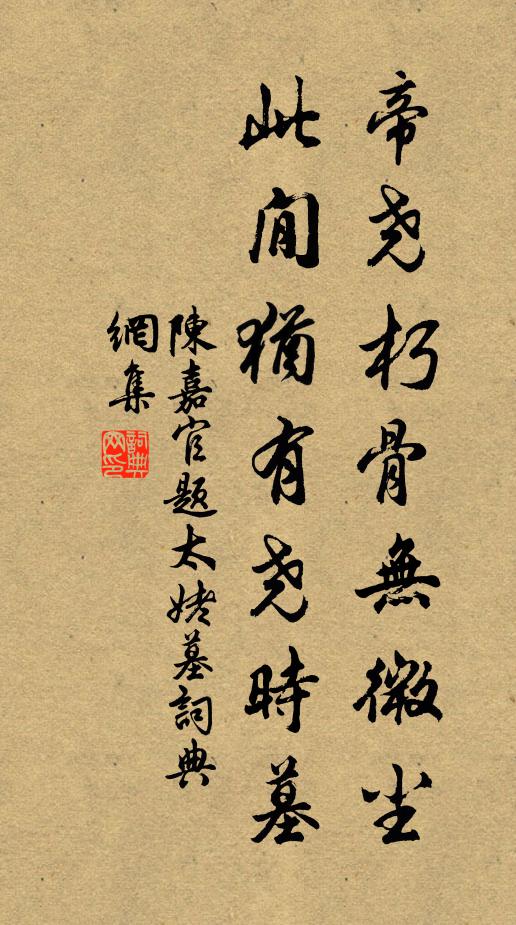 帝尧朽骨無微尘
此間猶有尧時墓
陳嘉官題太姥墓詞典
網集
詞典网印